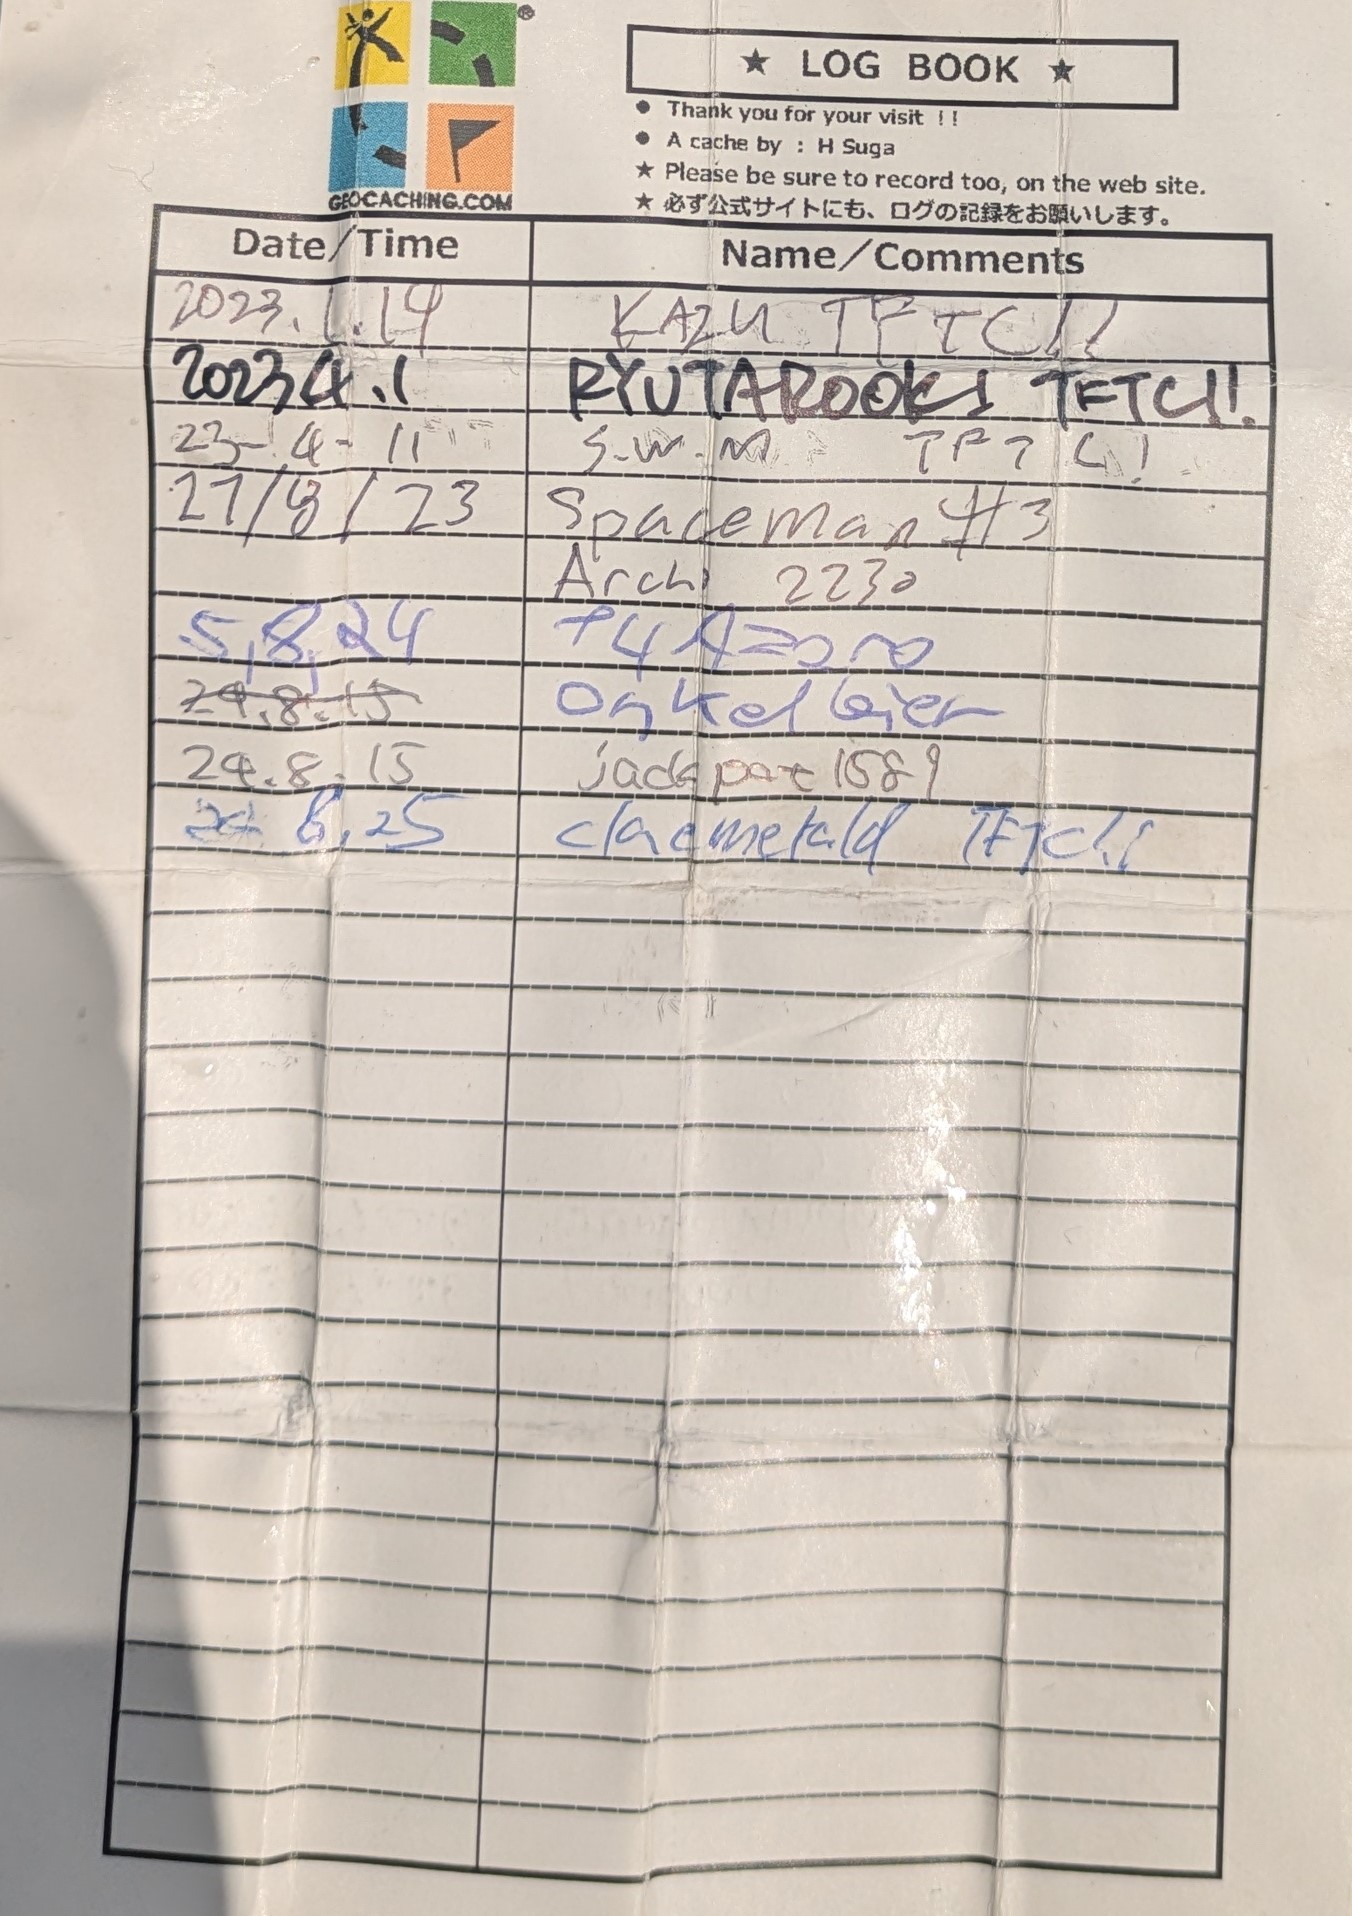 GEOCACHING.COM
®
★ LOG BOOK ★
● Thank you for your visit !!
● A cache by : H Suga
★ Please be sure to record too, on the web site.
★ 必ず公式サイトにも、ログの記録をお願いします。
Date/Time Name/Comments
2023.1.14 KAZU TFTC!!
2023.4.1 RYUTAROOKI TFTC!!
23-4-11 S.W.M TFTC!
27/8/23 Spaceman #3
Archi 2230
5,8,24
24.8.15 Onkel
24.8.15 jackpot1589
8,25 TFTC!!